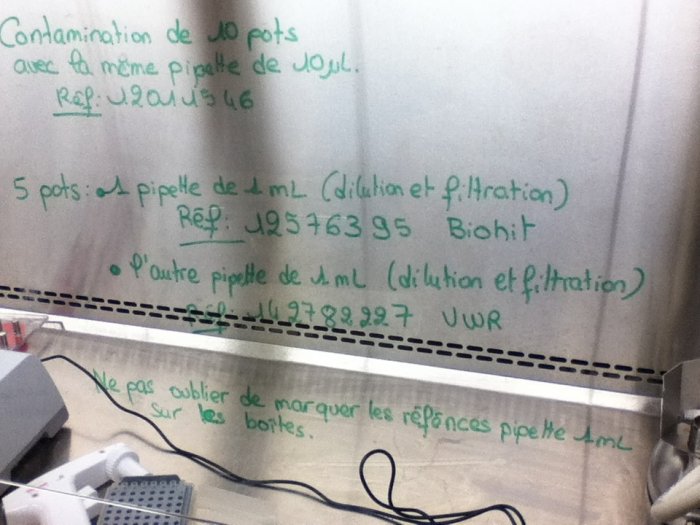 Contamination de 10 pots
avec la même pipette de 10 µL.
Réf: 12011546
5 pots: • 1 pipette de 1 mL (dilution et filtration)
Réf: 12576395 Biohit
• l'autre pipette de 1 mL (dilution et filtration)
Réf: 142782227 VWR
Ne pas oublier de marquer les réfénces pipette 1 mL
sur les boîtes.